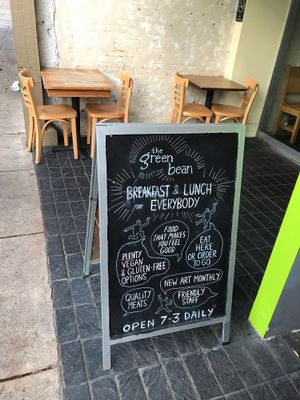 the
green
bean
BREAKFAST & LUNCH
for EVERYBODY
FOOD
THAT MAKES
YOU FEEL
GOOD
EAT
HERE
OR ORDER
TO GO
PLENTY
VEGAN
& GLUTEN-FREE
OPTIONS
NEW ART MONTHLY
QUALITY
MEATS
FRIENDLY
STAFF
OPEN 7-3 DAILY